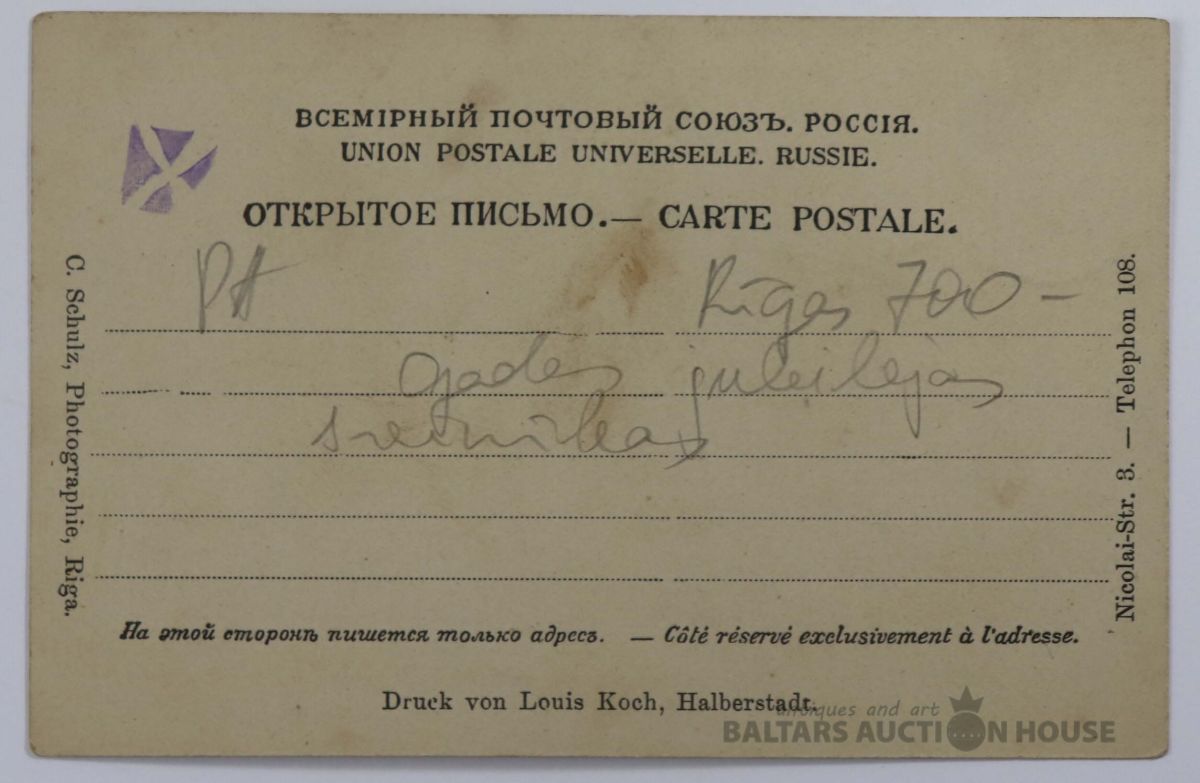 ВСЕМІРНЫЙ ПОЧТОВЫЙ СОЮЗЪ. РОССІЯ.
UNION POSTALE UNIVERSELLE. RUSSIE.
ОТКРЫТОЕ ПИСЬМО.— CARTE POSTALE.
Rīgas 700 —
gades jubilejas
C. Schulz, Photographie, Riga.
Nicolai-Str. 3. — Telephon 108.
На этой сторонѣ пишется только адресъ. — Côté réservé exclusivement à l'adresse.
Druck von Louis Koch, Halberstadt.
antiques and art
BALTARS AUCTION HOUSE